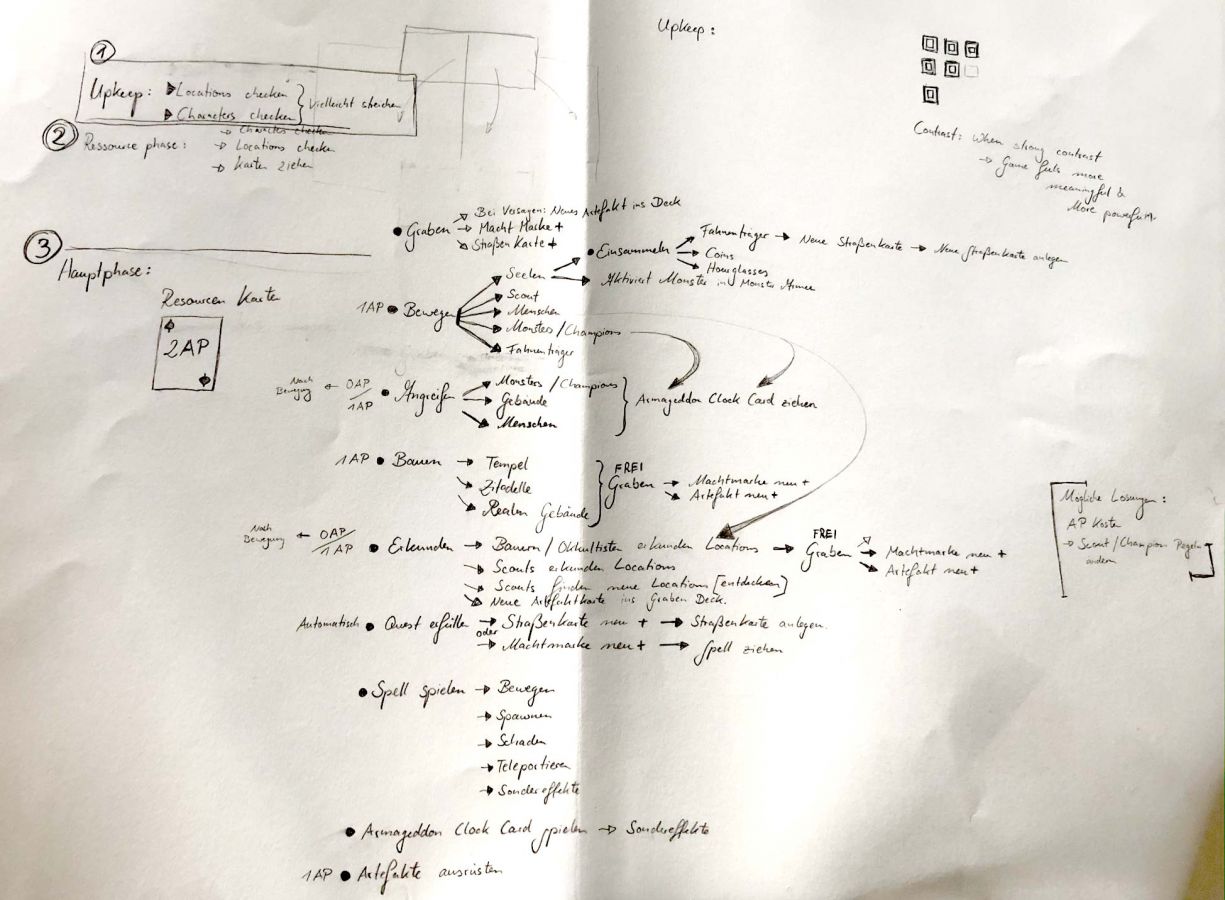 Upkeep:
1
Upkeep: Locations checken
Characters checken
Vielleicht streichen
2
Characters checken
Ressource phase: Locations checken
Karten ziehen
Contrast: When strong contrast
Game feels more
meaningful &
More powerful.
3
Hauptphase:
Resourcen Karten
2AP
Graben
Bei Versagen: Neues Artefakt ins Deck
Macht Marke +
Straßen Karte +
1AP Bewegen
Seelen
Einsammeln
Fahnenträger → Neue Straßenkarte → Neue Straßenkarte anlegen
Coins
Hourglasses
Aktiviert Monster in Monster Armee
Scout
Menschen
Monsters / Champions
Fahnenträger
Nach Bewegung ← 0AP / 1AP Angreifen
Monsters / Champions
Gebäude
Menschen
Armageddon Clock Card ziehen
1AP Bauen → Tempel
Zitadelle
Realm Gebäude
FREI
Graben → Machtmarke neu +
→ Artefakt neu +
Nach Bewegung ← 0AP / 1AP Erkunden → Bauern / Okkultisten erkunden Locations →
FREI
Graben → Machtmarke neu +
→ Artefakt neu +
Scouts erkunden Locations
Scouts finden neue Locations [entdecken]
Neue Artefaktkarte ins Graben Deck.
Mögliche Lösungen:
AP Kosten
→ Scout / Champion Regeln
ändern
Automatisch Quest erfüllen → Straßenkarte neu + → Straßenkarte anlegen.
oder
→ Machtmarke neu + → Spell ziehen
Spell spielen → Bewegen
→ Spawnen
→ Schaden
→ Teleportieren
→ Sondereffekte
Armageddon Clock Card spielen → Sondereffekte
1AP Artefakte ausrüsten